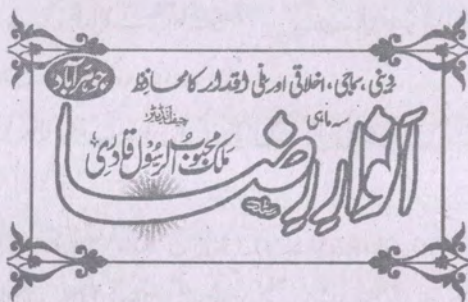 دینی، سماجی، اخلاقی اور ملی اقدار کا محافظ
جوہر آباد
سہ ماہی
انوارِ رضا
چیف ایڈیٹر
ملک محبوب الرسول قادری